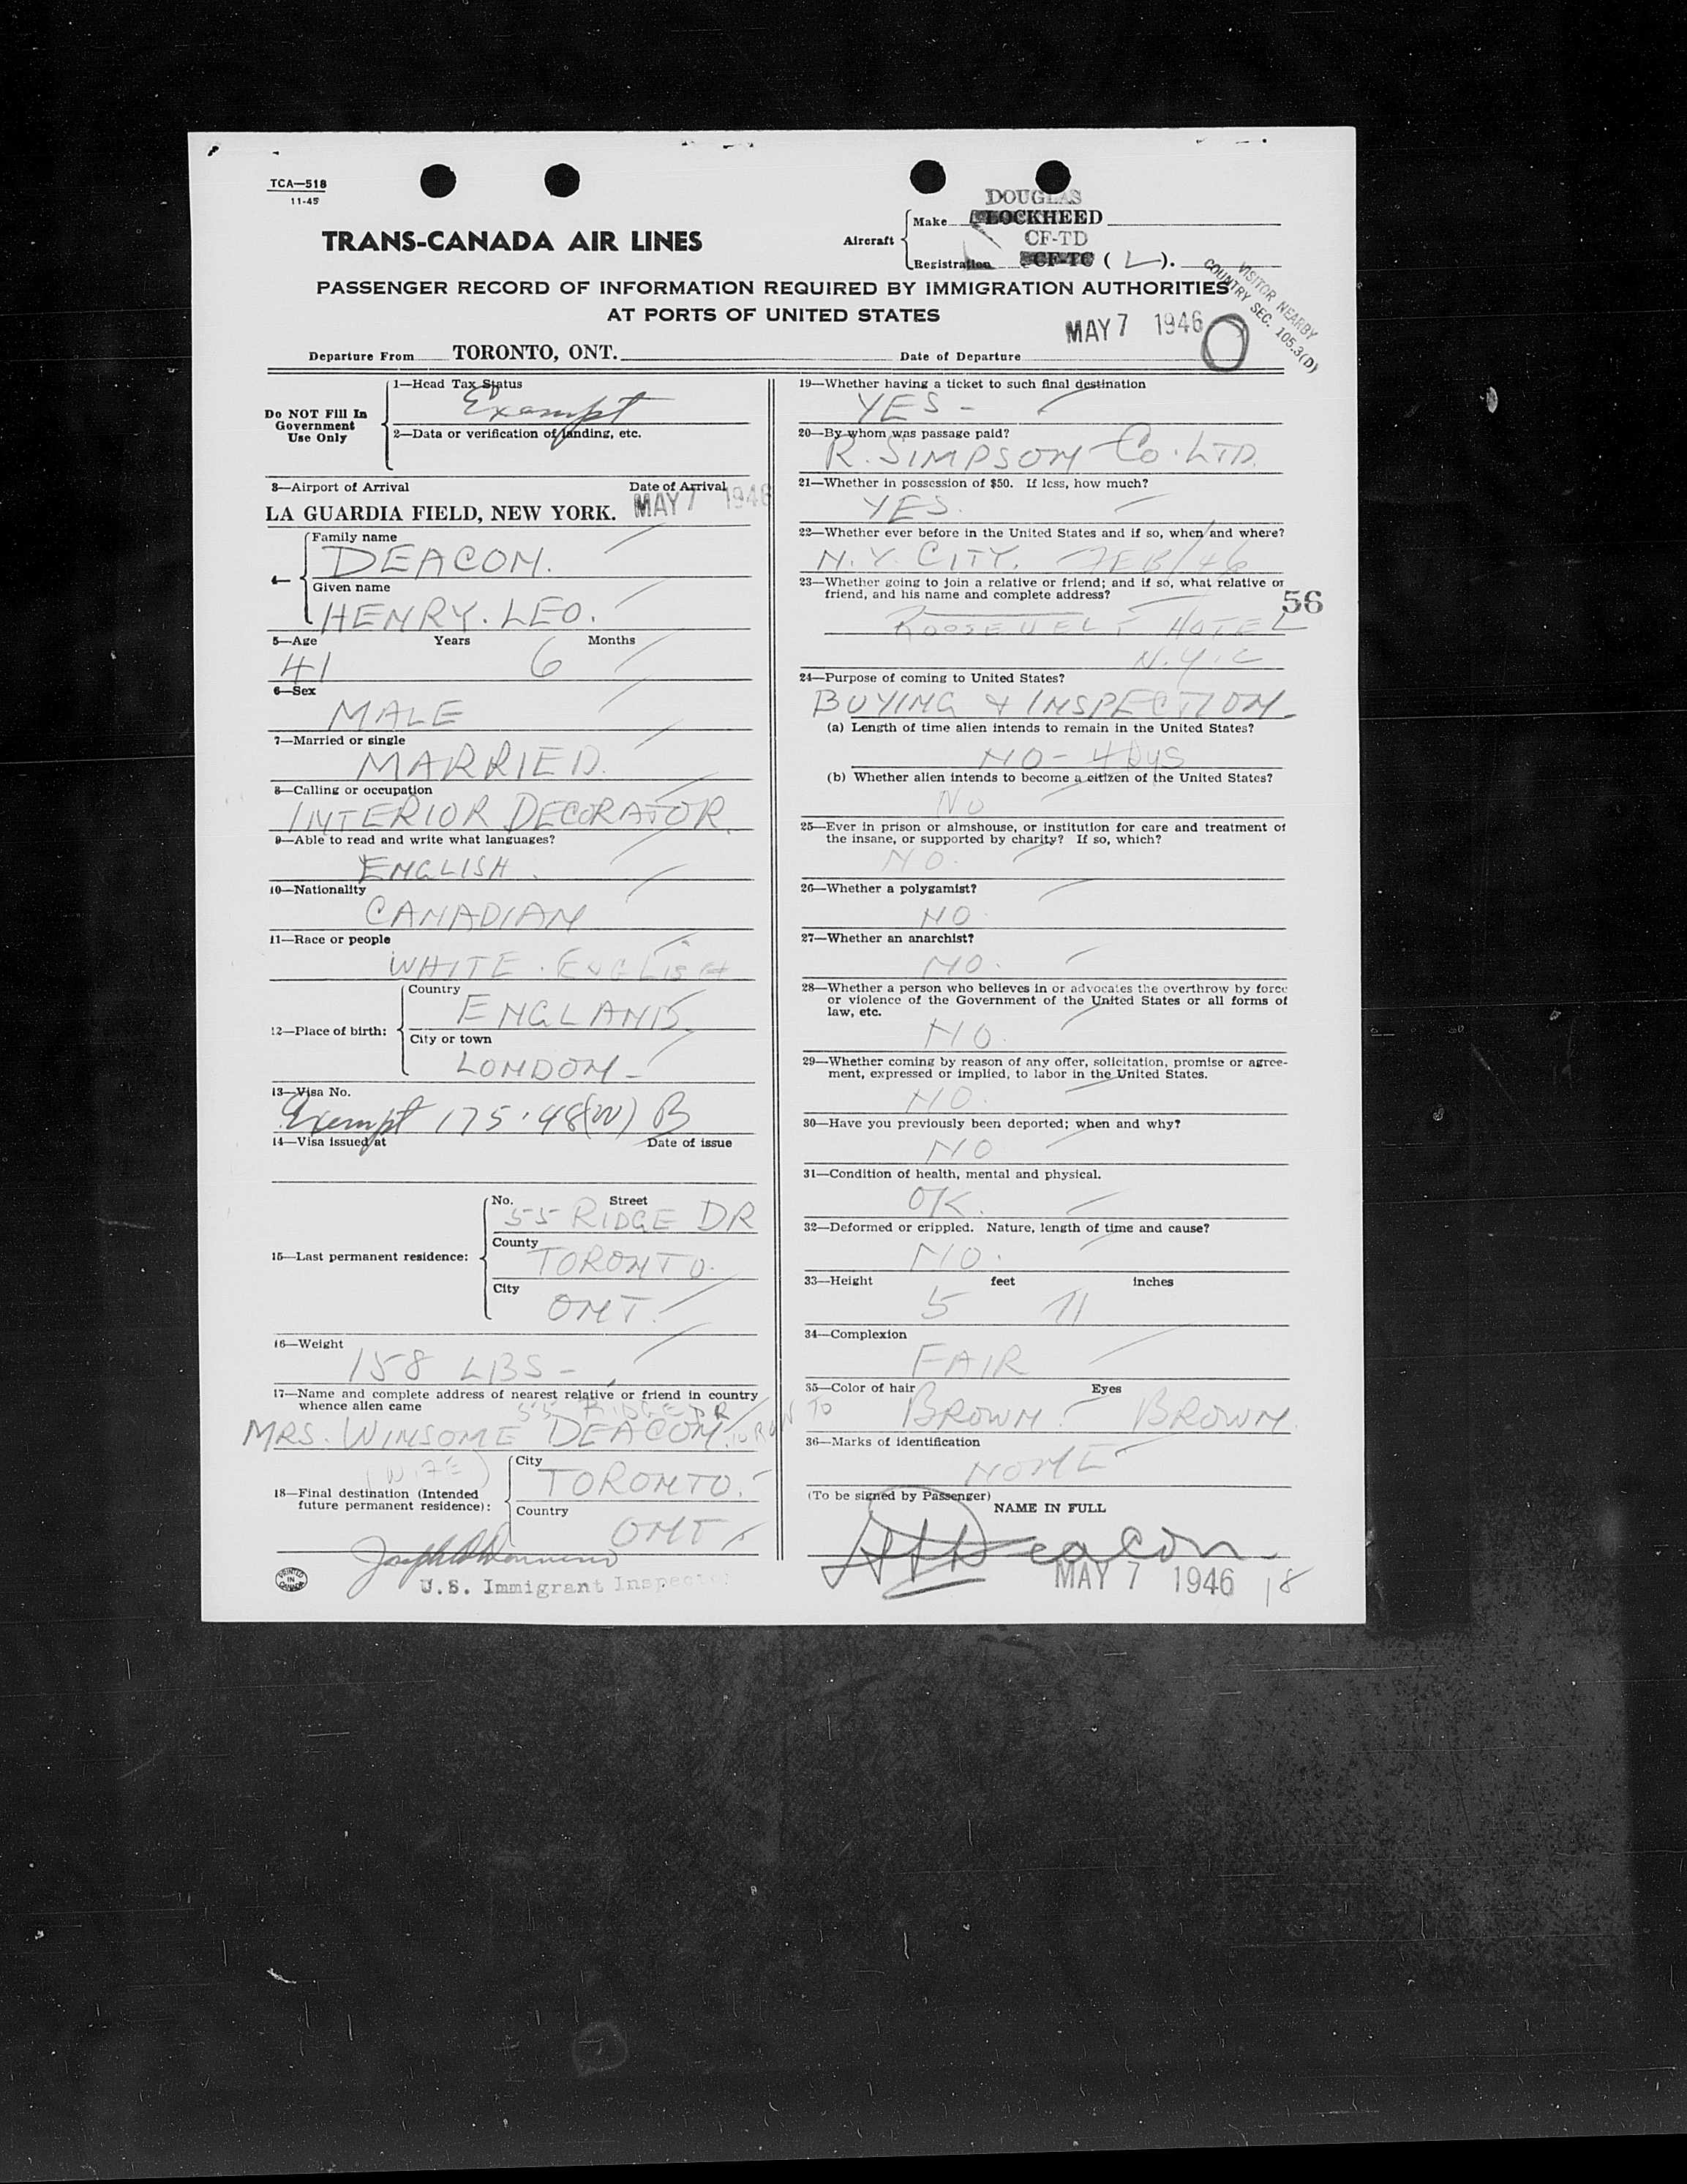 TCA—518
11-45
DOUGLAS
Make LOCKHEED
TRANS-CANADA AIR LINES
Aircraft
CF-TD
Registration CF-TC ( L ).
VISITOR NEARBY
COUNTRY SEC. 105.3(D)
PASSENGER RECORD OF INFORMATION REQUIRED BY IMMIGRATION AUTHORITIES
AT PORTS OF UNITED STATES
MAY 7 1946
Departure From TORONTO, ONT. Date of Departure
Do NOT Fill In
Government
Use Only
1—Head Tax Status
Exempt
2—Data or verification of landing, etc.
3—Airport of Arrival Date of Arrival
LA GUARDIA FIELD, NEW YORK. MAY 7 1946
Family name
DEACON.
4
Given name
HENRY. LEO.
5—Age Years Months
41 6
6—Sex
MALE
7—Married or single
MARRIED.
8—Calling or occupation
INTERIOR DECORATOR.
9—Able to read and write what languages?
ENGLISH.
10—Nationality
CANADIAN
11—Race or people
WHITE. ENGLISH
12—Place of birth:
Country
ENGLAND
City or town
LONDON-
13—Visa No.
Exempt 175.48(W) B
14—Visa issued at Date of issue
15—Last permanent residence:
No. Street
55 RIDGE DR
County
TORONTO.
City
ONT.
16—Weight
158 LBS-
17—Name and complete address of nearest relative or friend in country
whence alien came
55 RIDGE DR
MRS. WINSOME DEACON. TORONTO
(WIFE)
18—Final destination (Intended
future permanent residence):
City
TORONTO.
Country
ONT
U.S. Immigrant Inspector
PRINTED
IN
CANADA
19—Whether having a ticket to such final destination
YES-
20—By whom was passage paid?
R. SIMPSON Co. LTD.
21—Whether in possession of $50. If less, how much?
YES.
22—Whether ever before in the United States and if so, when and where?
N.Y. CITY. FEB/46
23—Whether going to join a relative or friend; and if so, what relative or
friend, and his name and complete address?
56
ROOSEVELT HOTEL
N.Y.C
24—Purpose of coming to United States?
BUYING & INSPECTION
(a) Length of time alien intends to remain in the United States?
NO- 4 DYS
(b) Whether alien intends to become a citizen of the United States?
NO
25—Ever in prison or almshouse, or institution for care and treatment of
the insane, or supported by charity? If so, which?
NO.
26—Whether a polygamist?
NO.
27—Whether an anarchist?
NO.
28—Whether a person who believes in or advocates the overthrow by force
or violence of the Government of the United States or all forms of
law, etc.
NO.
29—Whether coming by reason of any offer, solicitation, promise or agree-
ment, expressed or implied, to labor in the United States.
NO.
30—Have you previously been deported; when and why?
NO
31—Condition of health, mental and physical.
OK.
32—Deformed or crippled. Nature, length of time and cause?
NO.
33—Height feet inches
5 11
34—Complexion
FAIR
35—Color of hair Eyes
BROWN. BROWN.
36—Marks of identification
NONE
(To be signed by Passenger)
NAME IN FULL
Deacon
MAY 7 1946 18